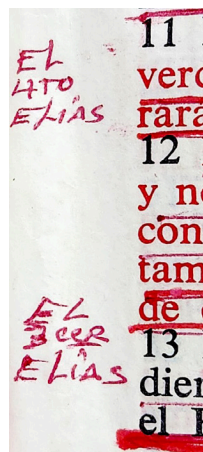 EL
4TO
ELIAS
EL
3CER
ELIAS
11
verd
rará
12
y n
con
tam
de
13
dien
el